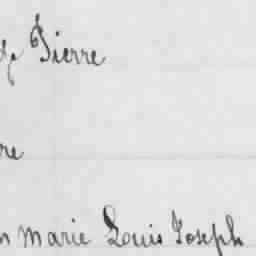 de Pierre
re
n Marie Louis Joseph